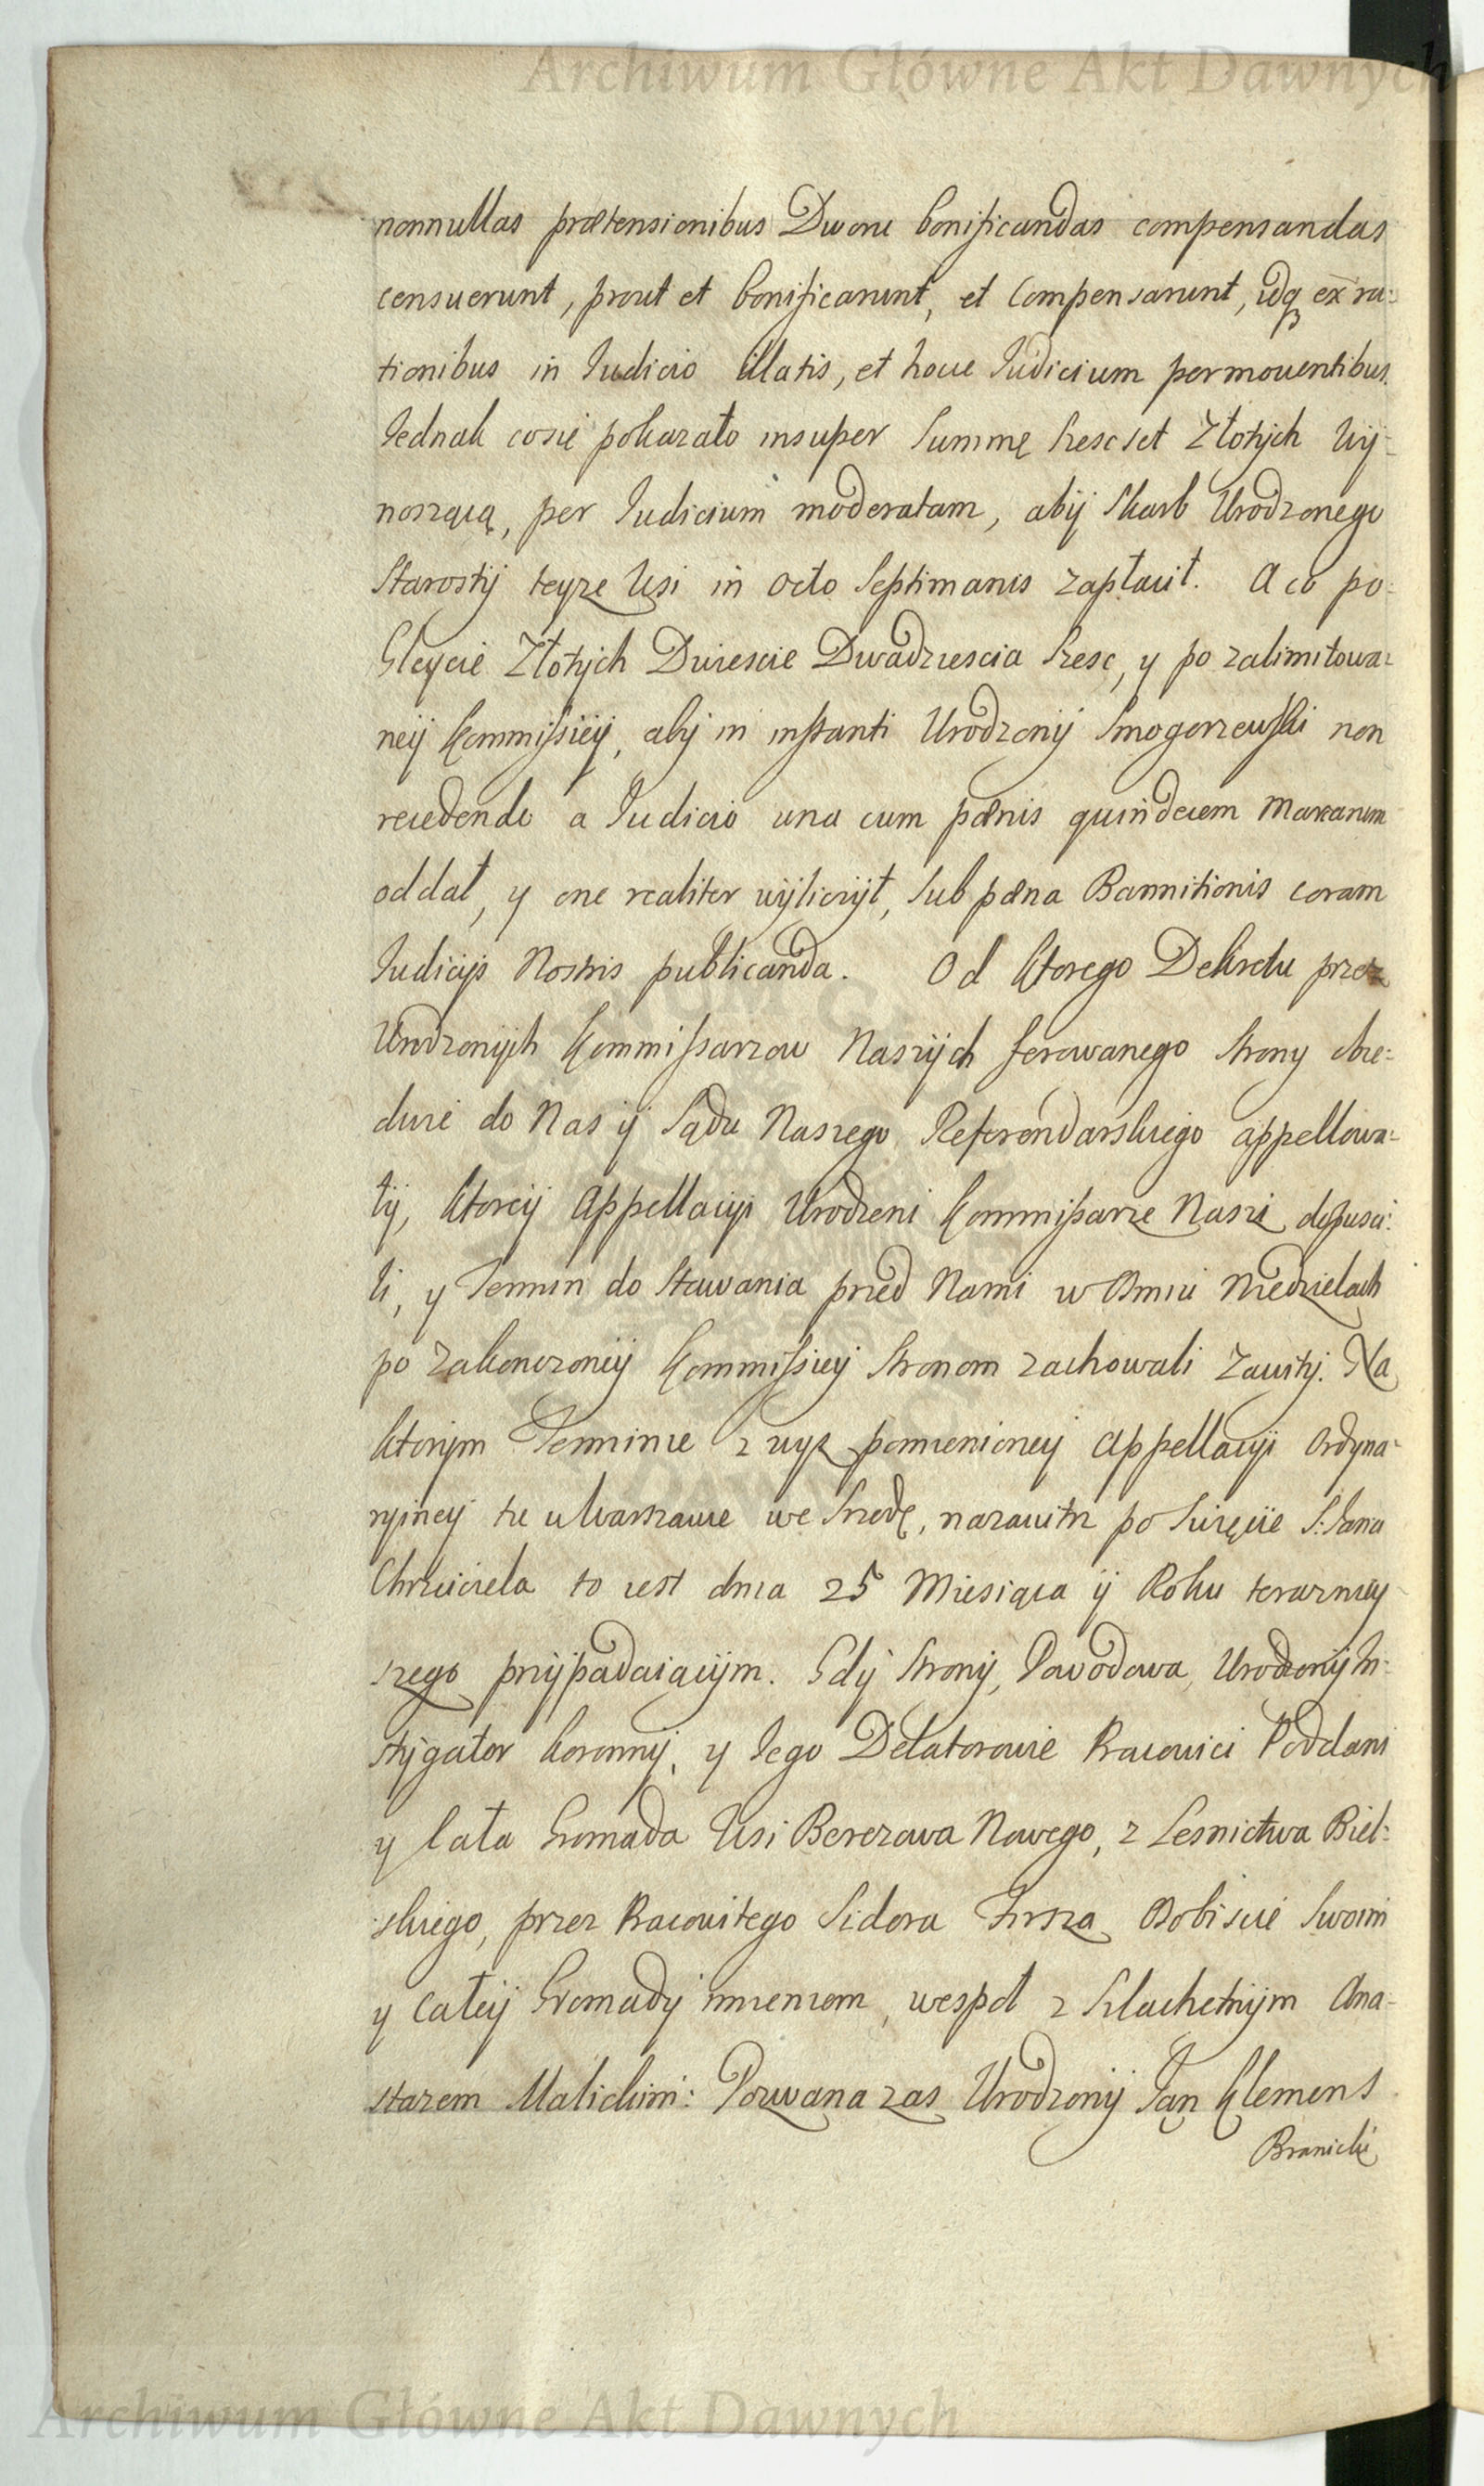 Archiwum Główne Akt Dawnych
nonnullas prætensionibus Dworu bonificandas compensandas
censuerunt, prout et bonificarunt, et compensarunt, idq ex ra:
tionibus in Judicio illatis, et hocce Judicium permouentibus.
Jednak cosię pokazało insuper Summę szescset Złotych wy-
noszącą, per Judicium moderatam, aby Skarb Urodzonego
Starosty teyze Wsi in octo Septimanis zapłacił. A co po-
Gleycie Złotych Dwiescie Dwadziescia szesc, y po zalimitowa:
ney Kommissiey, aby in instanti Urodzony Smogorzewski non
recedendo a Judicio una cum pænis quindecem Marcarum
oddał, y one realiter wyliczył, sub pæna Bannitionis coram
Judicijs Nostris publicanda. Od ktorego Dekretu przez
Urodzonych Kommissarzow Naszych ferowanego Strony obie:
dwie do Nas y Sądu Naszego Referendarskiego appellowa-
ły, ktorey Appellacyi Urodzeni Kommissarze Nasi dopusci:
li, y Termin do stawania przed Nami w Osmiu Niedzielach
po zakonczoney Kommissiey Stronom zachowali zawity. Na
ktorym Terminie z wyz pomienioney Appellacyi Ordyna-
ryiney tu w Warszawie we Srzodę, nazaiutrz po Swięcie S: Jana
Chrzciciela to iest dnia 25 Miesiąca y Roku teraznieỿ
szego przypadaiącym. Gdy Strony, Powodowa Urodzony In:
stygator Koronny, y Jego Delatorowie Pracowici Poddani
y Cała Gromada Wsi Berezowa Nowego, z Lesnictwa Biel:
skiego, przez Pracowitego Sidora Hrsza Osobiscie Swoim
y Całey Gromady imieniem, wespoł z Szlachetnym Ana-
stazem Malickim: Pozwana zas Urodzony Jan Klemens
Branicki
Archiwum Główne Akt Dawnych